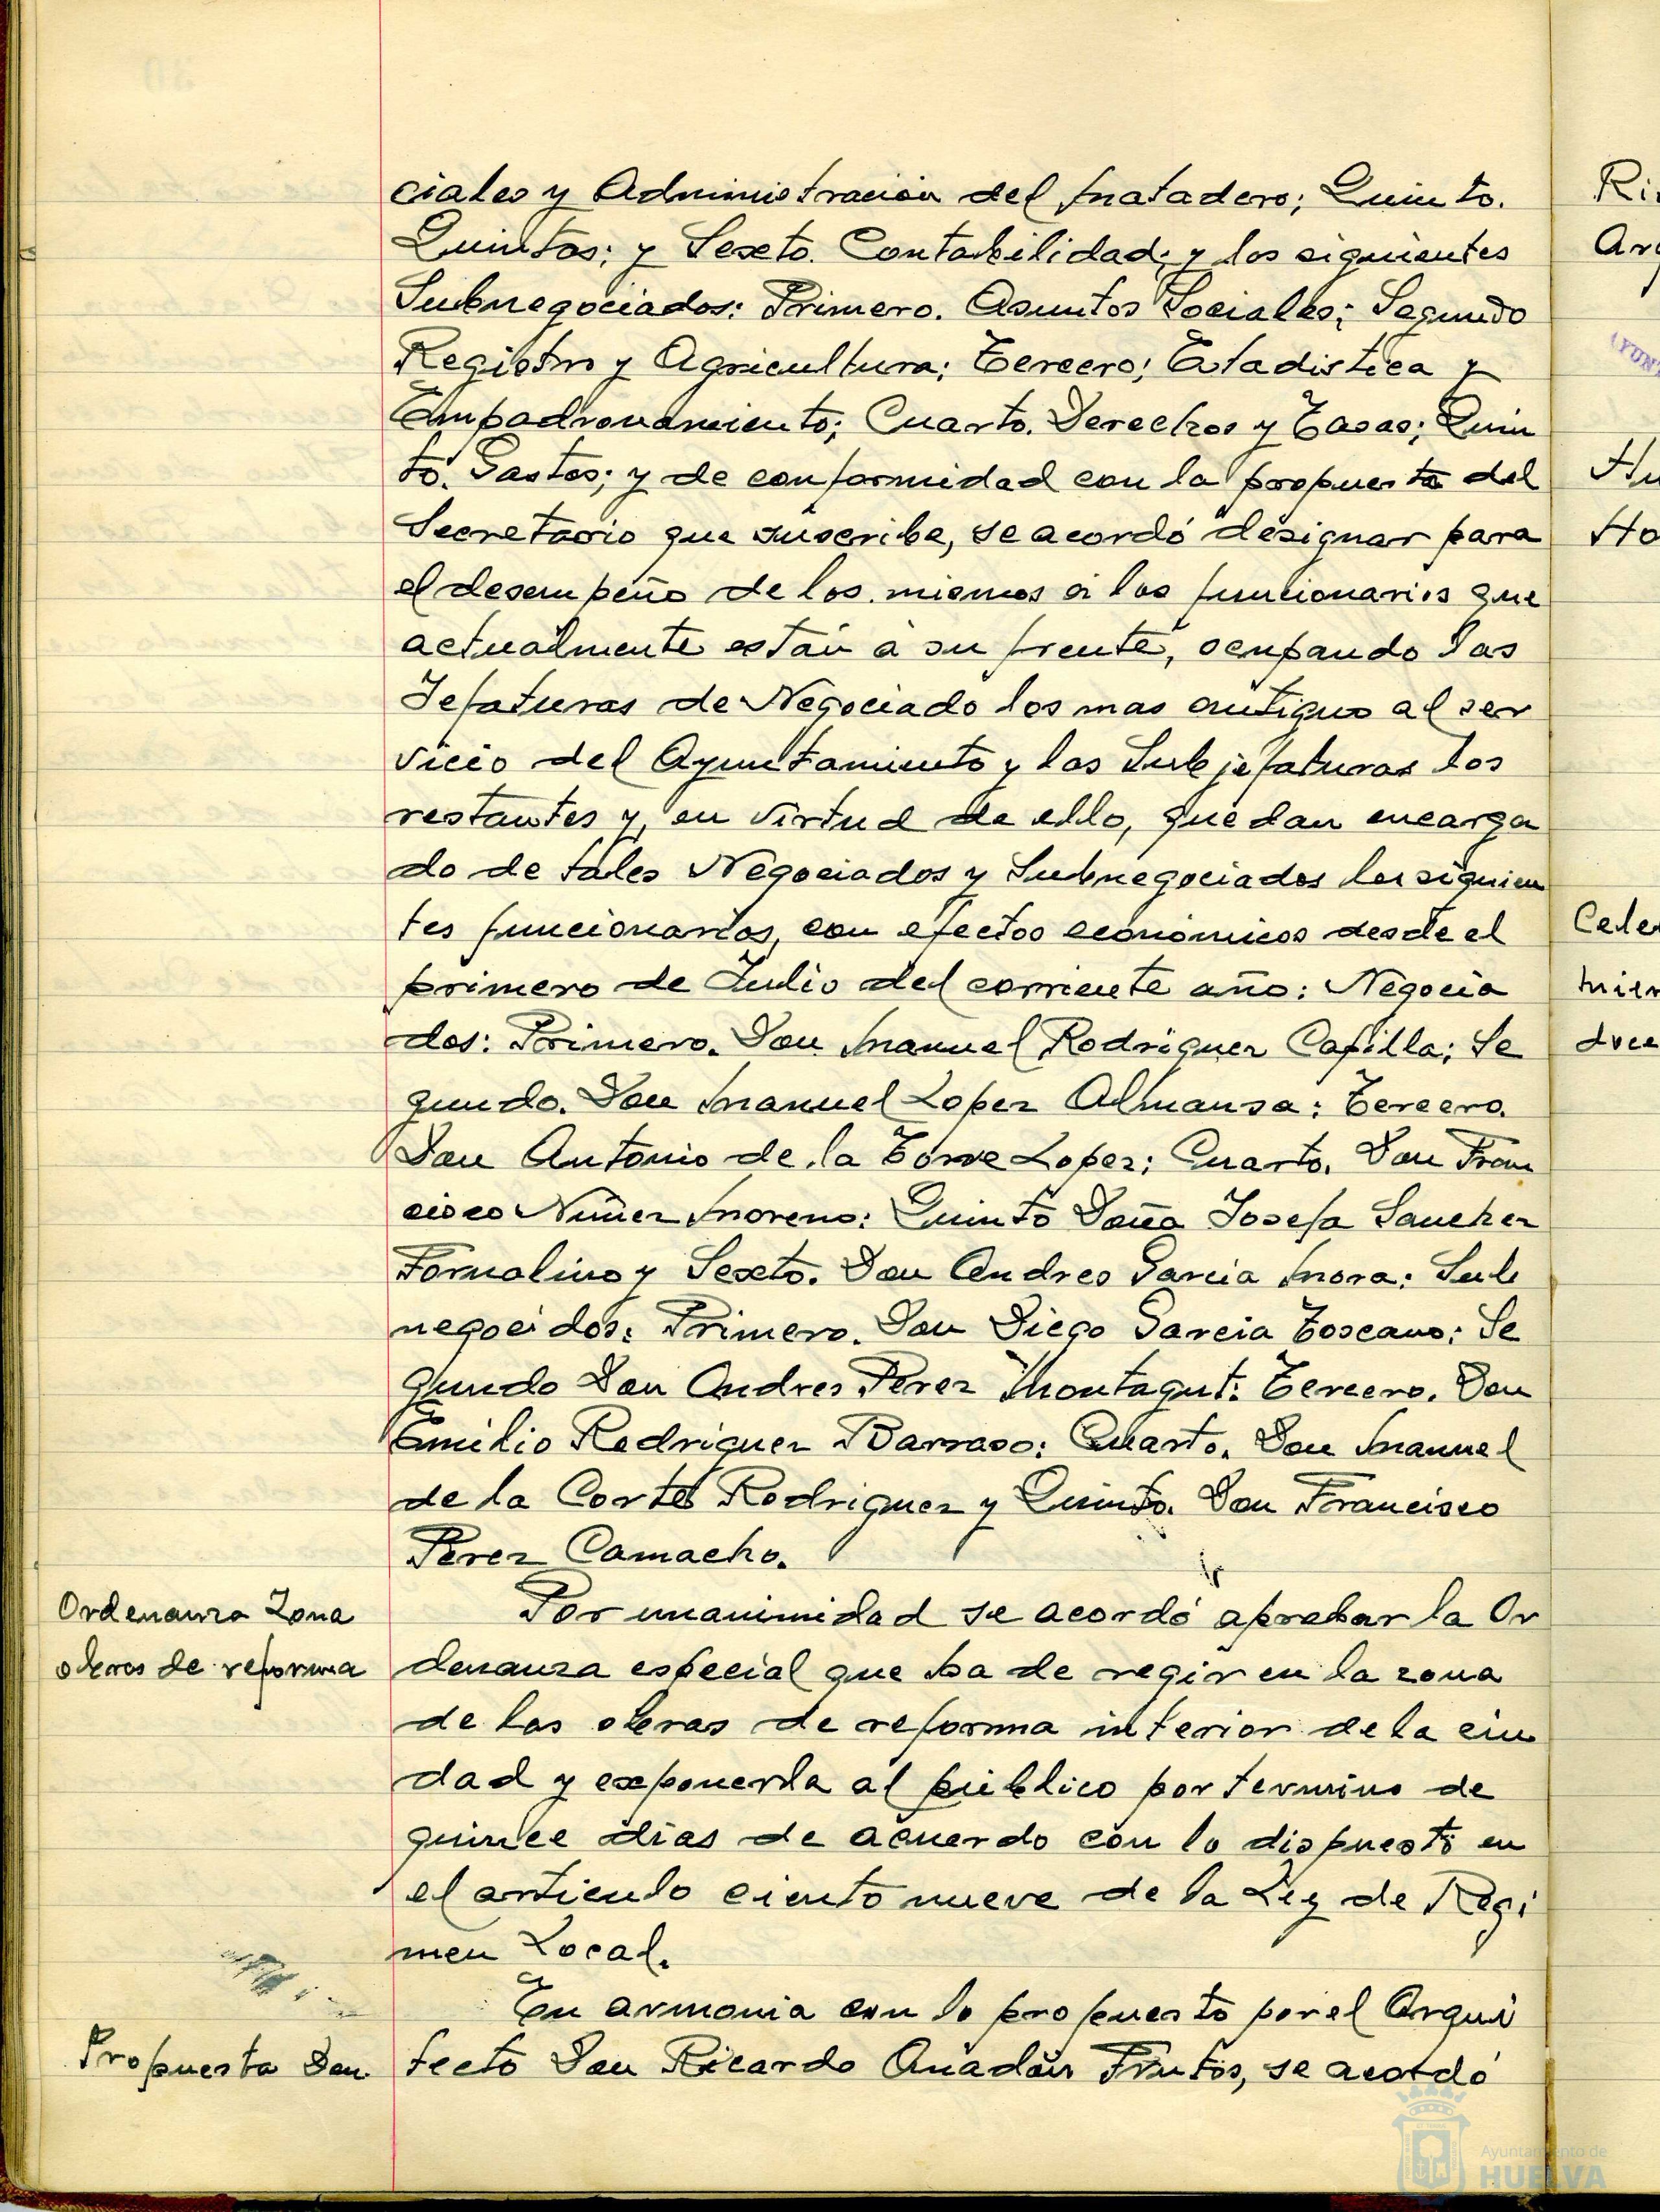 ciales y Administración del Matadero; Quinto.
Quintas; y Sexto. Contabilidad; y los siguientes
Subnegociados: Primero. Asuntos Sociales; Segundo
Registro y Agricultura; Tercero; Estadistica y
Empadronamiento; Cuarto. Derechos y Tasas; Quin
to. Gastos; y de conformidad con la propuesta del
Secretario que suscribe, se acordó designar para
el desempeño de los mismos a los funcionarios que
actualmente están a su frente, ocupando las
Jefaturas de Negociado los mas antiguo al ser
vicio del Ayuntamiento y las Subjefaturas los
restantes y, en virtud de ello, quedan encarga
do de tales Negociados y Subnegociados los siguien
tes funcionarios, con efectos económicos desde el
primero de Julio del corriente año: Negocia
dos: Primero. Don Manuel Rodriguez Capilla; Se
gundo. Don Manuel Lopez Almansa: Tercero.
Don Antonio de la Torre Lopez; Cuarto. Don Fran
cisco Nuñez Moreno: Quinto Doña Josefa Sanchez
Fornalino y Sexto. Don Andres Garcia Mora: Sub
negocidos: Primero. Don Diego Garcia Toscano: Se
gundo Don Andres Perez Montagut: Tercero. Don
Emilio Rodriguez Barraso: Cuarto. Don Manuel
de la Corte Rodriguez y Quinto. Don Francisco
Perez Camacho.
Ordenanza Zona
obras de reforma
Por unanimidad se acordó aprobar la Or
denanza especial que ha de regir en la zona
de las obras de reforma interior de la ciu
dad y exponerla al público por termino de
quince dias de acuerdo con lo dispuesto en
el articulo ciento nueve de la Ley de Regi
men Local.
Propuesta Don
En armonia con lo propuesto por el Arqui
tecto Don Ricardo Anadón Frutos, se acordó
Ri
Arq
AYUNT
Hu
Ho
Cele
mien
doce
Ayuntamiento de
HUELVA